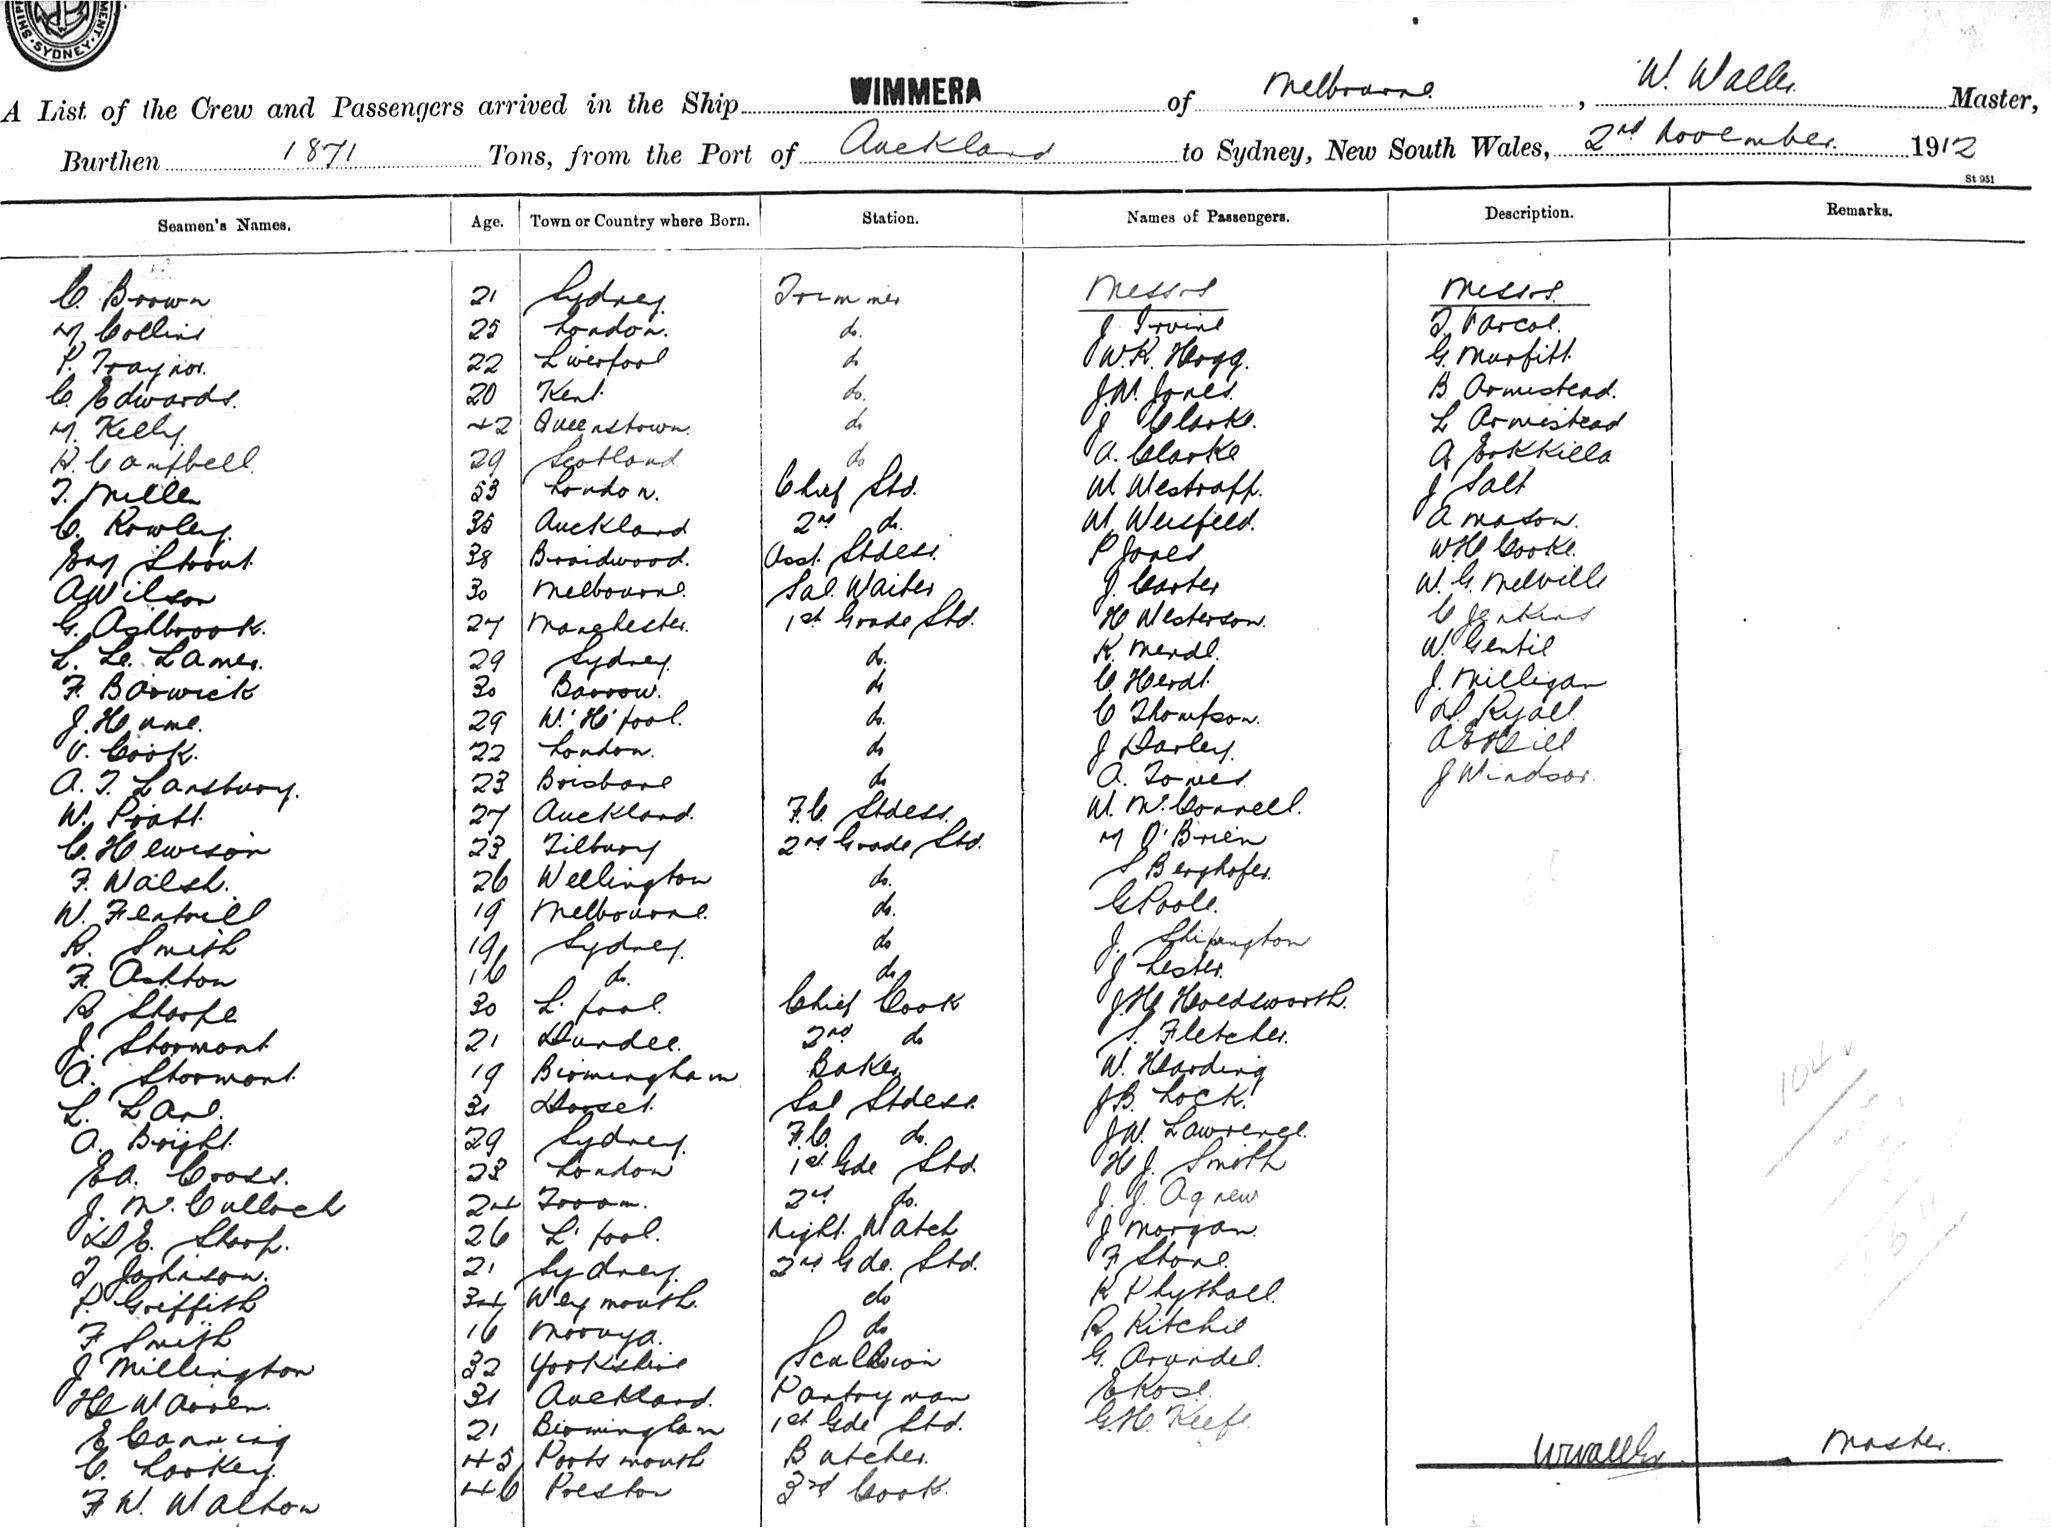 SYDNEY
A List of the Crew and Passengers arrived in the Ship WIMMERA of Melbourne, W. Waller Master,
Burthen 1871 Tons, from the Port of Auckland to Sydney, New South Wales, 2nd November 1912
St 951
Seamen's Names. Age. Town or Country where Born. Station. Names of Passengers. Description. Remarks.
C. Brown 21 Sydney Trimmer Messrs Messrs.
M. Collins 25 London. do. J Irvine T. Varcoe.
P. Traynor. 22 Liverpool do W.K. Hogg. G. Murfitt
C. Edwards. 20 Kent do. J.W. Jones. B Armistead.
M. Kelly. 42 Queenstown. do J Clarke. L Armistead
R. Campbell. 29 Scotland do A. Clarke A Erkkilla
T. Miller 53 London. Chief Std. W Westrapp. J Salt
C. Rowley. 35 Auckland 2nd do. W Weisfeld. A Mason.
Strout 38 Braidwood. Asst. Stdess. P Jones W H Cooke.
A Wilson 30 Melbourne. Sal. Waiter J. Carter W. G. Melville
G. Ashbrook. 27 Manchester. 1st Grade Std. H Westerson. C Jenkins
L. Le. Lamer. 29 Sydney. do. K. Mendl. W. Gentil
F. Barwick 30 Barrow. do C. Herdt. J. Milligan
J. Hume. 29 W. 'H' pool. do. C Thompson. D. Ryall
V. Cook. 22 London. do J Darley. A E Hill
A. T. Lansbury. 23 Brisbane do A. Jones. J Windsor.
W. Pratt. 27 Auckland. F.C. Stdess. W. McConnell.
C. Hewison 23 Tilbury 2nd Grade Std. M O'Brien
F. Walsh. 26 Wellington do. S Berghofer.
W. 19 Melbourne. do. G Poole.
R. Smith 19 Sydney. do J.
F. Ashton 16 do. do. J Lester.
R Sharpe 30 L. pool. Chief Cook J.H. Holdsworth.
J. Stormont 21 Dundee. 2nd do S. Fletcher.
A. Stormont. 19 Birmingham Baker W. Harding
L. Lane. 31 Dorset. Sal Stdess. J.B. Lock.
A. Bright. 29 Sydney. F.C. do. J.W. Lawrence.
E A. Cross. 23 London 1st Gde Std. H J. Smith
J. McCulloch 24 Troom. 2nd do. J. J. Agnew
D E. Sharp. 26 L' pool. Night. Watch J Morgan.
T Johnson. 21 Sydney. 2nd Gde. Std. F Stone.
P. Griffith 34 Weymouth. do K Phythall.
F Smith 16 Moruya. do R Ritchie
J Millington 32 Yorkshire Scullion G. Arundel.
H Warren. 31 Auckland. Pantryman E Rose.
E Canning 21 Birmingham 1st Gde Std. G.H. Keefe
C. Lookey. 45 Portsmouth Butcher.
F W. Walton 46 Preston 3rd Cook.
104
W Waller Master.